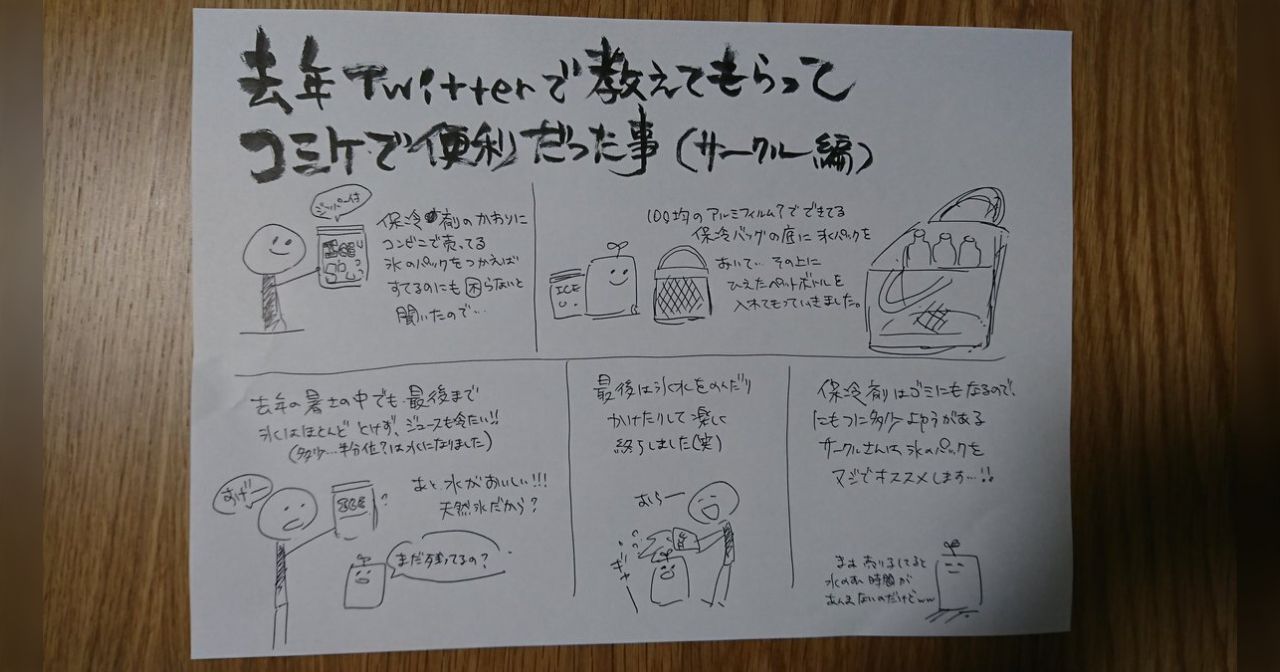 去年Twitterで教えてもらって
コミケで便利だった事(サークル編)
ジッパー付
保冷剤のかわりに
コンビニで売ってる
氷のパックをつかえば
すてるのにも困らないと
聞いたので…
ICE
100均のアルミフィルム?でできてる
保冷バッグの底に氷パックを
おいて… その上に
ひえたペットボトルを
入れてもっていきました。
ICE
去年の暑さの中でも最後まで
氷はほとんどとけず、ジュースも冷たい!!
(多少…半分位?は水になりました)
あと水がおいしい!!!
天然水だから?
あげー
ICE
?
まだ残ってるの?
最後は氷水をのんだり
かけたりして楽しく
終了しました(笑)
おらー
ギャー
保冷剤はゴミにもなるので、
にもつに多少よゆうがある
サークルさんは、氷のパックを
マジでオススメします…!!
まぁ売り子してると
水のむ時間が
あんまないのだけどww